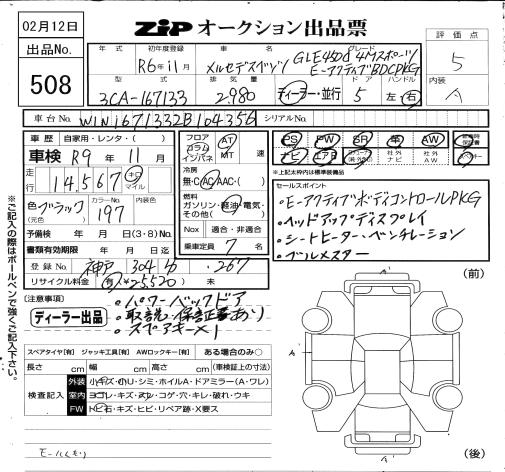 02月12日
ZIP オークション出品票
出品No.
508
年式
初年度登録 R6年11月
車名 メルセデスベンツ
グレード GLE450d 4Mスポーツ
E-アクティブBDCPKG
評価点
5
内装
A
型式 3CA-167133
排気量 2,980
ディーラー・並行
ドア 5
ハンドル 左・右
車台No. W1N1671332B104356
シリアルNo.
車歴 自家用・レンタ・( )
車検 R9年11月
走行 14,567 キロ マイル
色 ブラック (元色)
カラーNo. 197
内装色
予備検 年 月 日(3・8)No.
書類有効期限 年 月 日迄
登録No. 神戸 304 も ・267
リサイクル料金 有 ¥25,520 未
フロア コラム インパネ
AT MT 速
冷房 無・C・AC・AAC・( )
燃料 ガソリン・軽油・電気・その他( )
Nox 適合・非適合
乗車定員 7 名
PS PW SR 革 AW
ナビ エアB 社外ナビ 社外AW
*上記太枠内は標準装備品
セールスポイント
・E-アクティブボディコントロールPKG
・ヘッドアップディスプレイ
・シートヒーター・ベンチレーション
・ブルメスター
(注意事項)
ディーラー出品
・パワーバックドア
・取説・保証書あり
・スペアキー×1
スペアタイヤ[有] ジャッキ工具[有] AWロックキー[有] ある場合のみ○
長さ cm 幅 cm 高さ cm (車検証上の寸法)
検査記入
外装 小キズ・小凹・シミ・ホイルA・ドアミラー(A・ワレ)
室内 ヨゴレ・キズ・スレ・コゲ・穴・キレ・破れ・ウキ
FW トビ石・キズ・ヒビ・リペア跡・X要ス
(前)
A'
A'
A'
(後)
※ご記入の際はボールペンで強くご記入下さい。